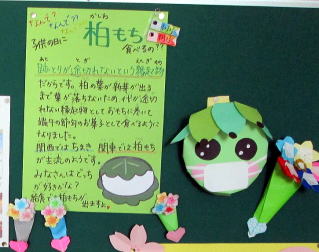 なんで?? なんで?? なんで??
子供の日に
柏もち
かしわ
食べるの??
跡とりが途切れないという縁起物
あと と
だからです。柏の葉が新芽が出る
まで葉が落ちないため、代が途切
れない縁起物としておもちに巻いて
端午の節句のお菓子として食べるように
なりました。
関西ではちまき 関東では柏もち
が主流のようです。
みなさんはどっち
が好きかな?
給食で柏もちが
出ますよ。